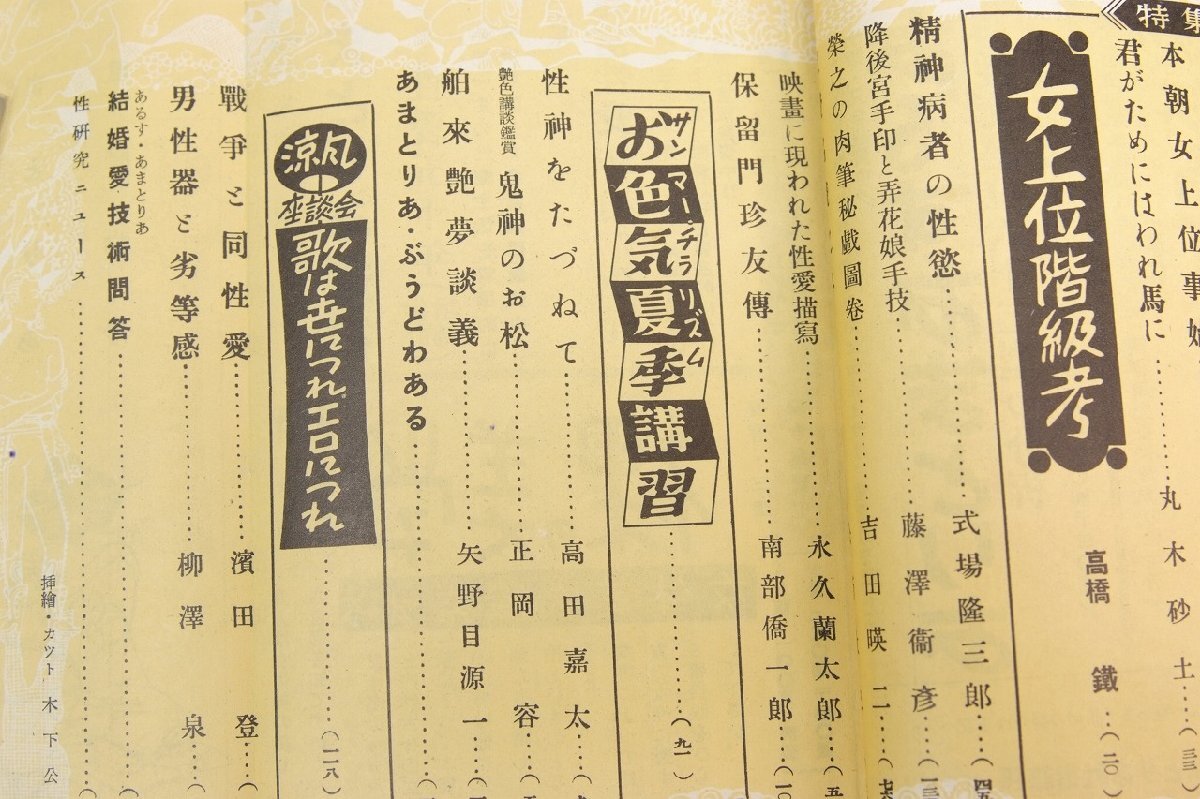 特集
本朝女上位事始
君がためにはわれ馬に……丸木砂土…(三三)
女上位階級考
高橋鐵…(二〇)
精神病者の性慾……式場隆三郎…(四五
降後宮手印と弄花娘手技……藤澤衞彦…(一三
榮之の肉筆秘戯圖卷……吉田暎二…(七六
映畫に現われた性愛描寫……永久蘭太郎…(五
保留門珍友傳……南部僑一郎…(一〇
サンマー・ナチラリズム
お色気夏季講習……(九一)
性神をたづねて……高田嘉太…(
艶色講談鑑賞 鬼神のお松……正岡容…(
舶來艶夢談義……矢野目源一…(一
あまとりあ・ぶうどわある……(
涼風座談会
歌は世につれエロにつれ……(一二八)
戰爭と同性愛……濱田登…(
男性器と劣等感……柳澤泉…(
あるす・あまとりあ
結婚愛技術問答……(
性研究ニュース……(
挿繪・カツト 木下公